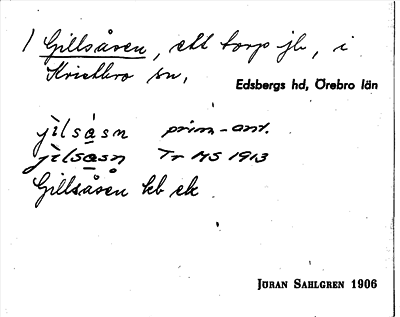 1 Gillsåsen, ett torp jb, i
Kvistbro sn,
Edsbergs hd, Örebro län
jìlsåsn prim-ant.
jìlsåsn Tr MS 1913
Gillsåsen kb ek
JÖRAN SAHLGREN 1906